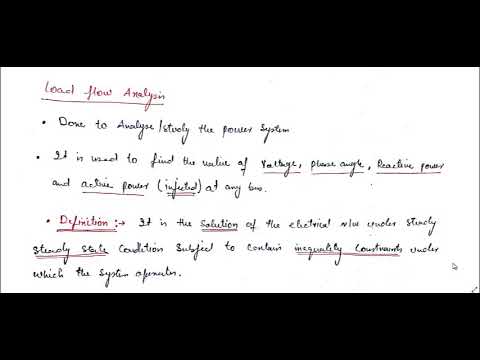 Load flow Analysis
• Done to Analyse/study the power system
• It is used to find the value of Voltage, phase angle, Reactive power
and active power (injected) at any bus.
• Definition :- It is the solution of the electrical n/w under steady
steady state condition subject to certain inequality constraints under
which the system operates.